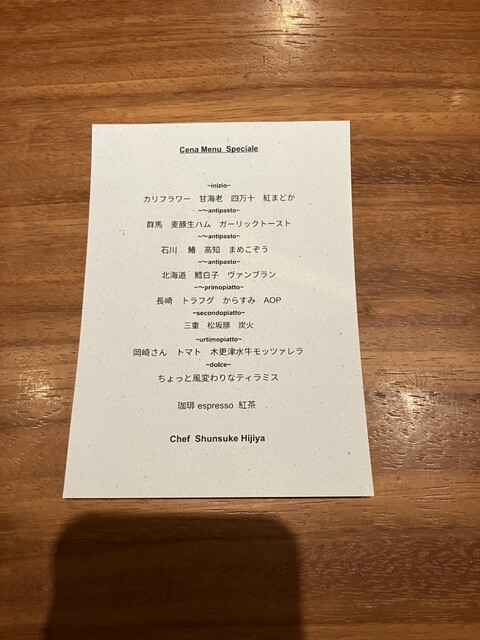 Cena Menu Speciale
~inizio~
カリフラワー 甘海老 四万十 紅まどか
~～antipasto~
群馬 麦豚生ハム ガーリックトースト
~～antipasto~
石川 鰆 高知 まめこぞう
~～antipasto~
北海道 鱈白子 ヴァンブラン
~～primopiatto~
長崎 トラフグ からすみ AOP
~secondopiatto~
三重 松坂豚 炭火
~urtimopiatto~
岡崎さん トマト 木更津水牛モッツァレラ
~dolce~
ちょっと風変わりなティラミス
珈琲 espresso 紅茶
Chef Shunsuke Hijiya